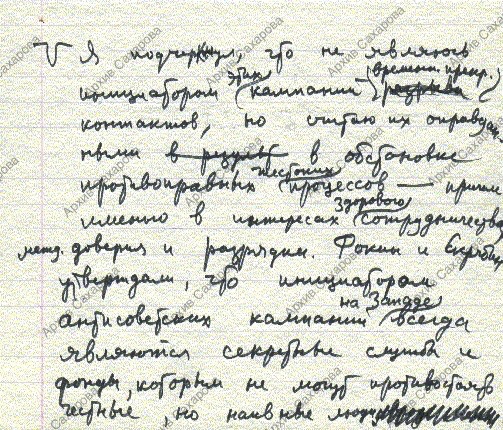 V Я подчеркнул, что не являюсь
инициатором этих кампаний (времени. прекр.) разрыва
контактов, но считаю их оправдан-
ными в резуль в обстановке
противоправных жестоких процессов — причем
именно в интересах здорового сотрудничества,
межд. доверия и разрядки. Фокин и Скрябин
утверждали, что инициаторами
антисоветских кампаний на Западе всегда
являются секретные службы и
фонды, которым не могут противостоять
честные, но наивные люди